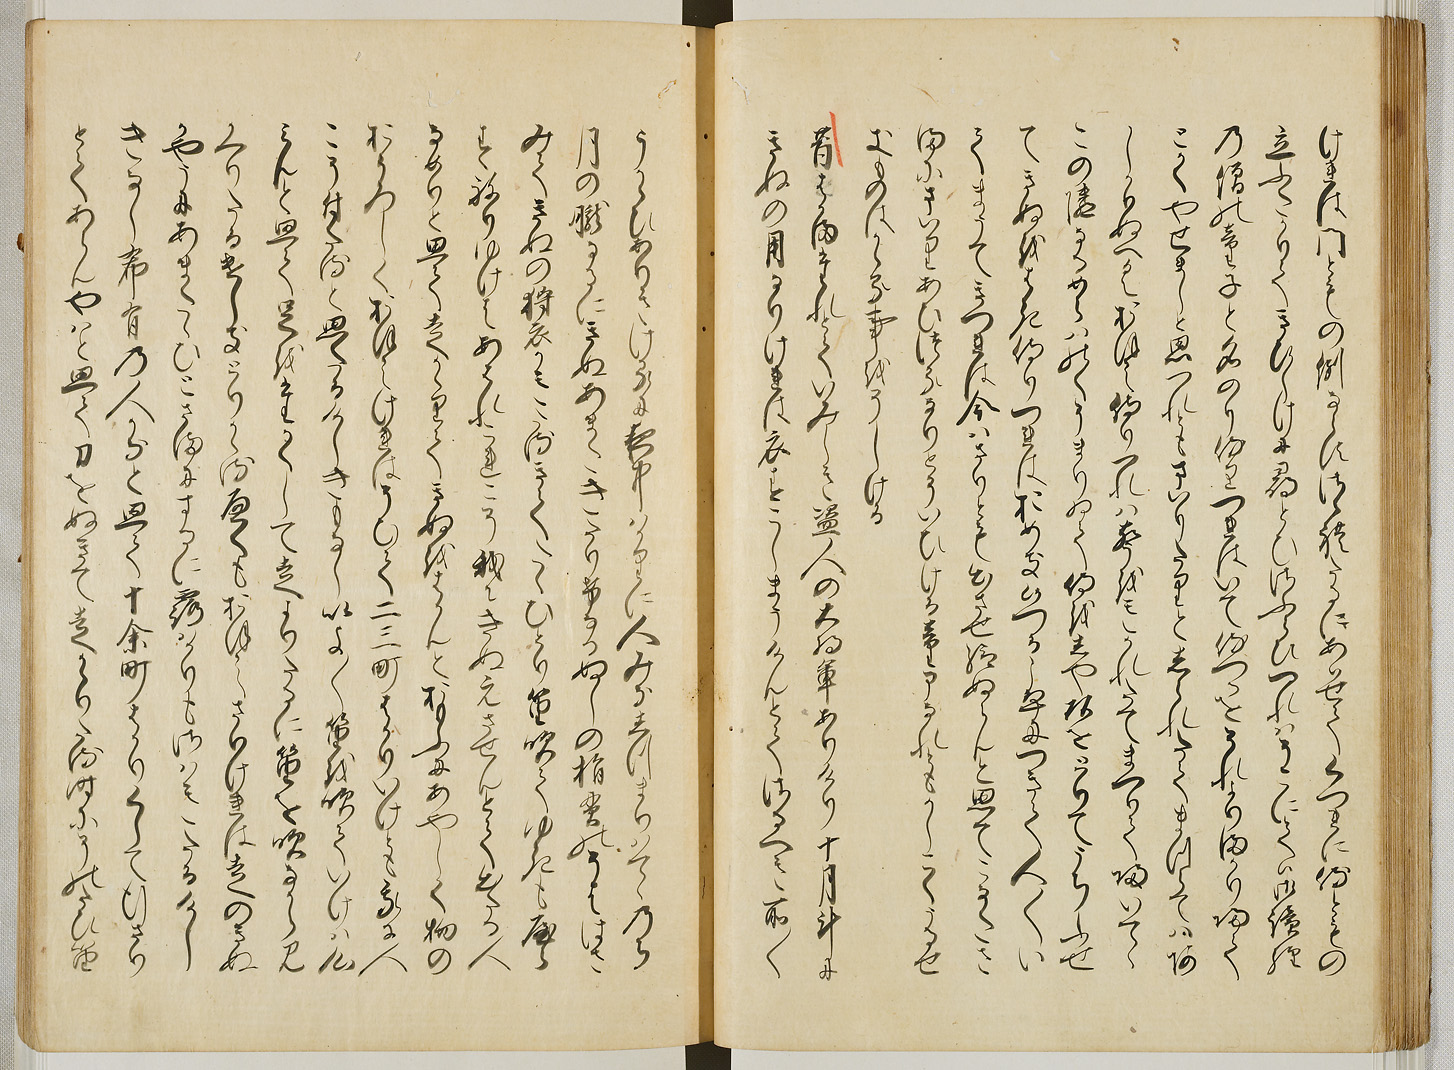 けれは門ともの例ならすさしたるにあはせてくるまに侍ともの
立ふさかりてきひしけに尋とひさふらひつれはそこにては御読経
乃僧の童子と名のり侍りつれはいて侍つるをそれよりまかり帰て
とかくやせましと思つれともまいりたりとしられたてまつらてはあ
しかりぬへくおほえ侍りつれは声をきかれたてまつりて帰いてゝ
この隣なるめらはのくそまりゐて侍をしや頭をとりてうちふせ
てきぬをはき侍りつれはおめき候つるこゑにつきて人々い
てまうてきつれは今はさりとも出させ給ぬらんと思てこなたさ
まにまいりあひつるなりとそいひける童子なれともかしこくうるせ
きものはかゝる事をそしける
昔はかまたれとていみしき盗人の大将軍ありけり十月斗に
きぬの用なりけれは衣すこしまうけんとてさるへき所々
うかゝひありきけるに夜中はかりに人みなしつまりはてゝのち
月の朧なるにきぬあまたきたりけるぬしの指貫のそははさ
みてきぬの狩衣めきたるきてたゝひとり笛吹てゆきもやら
すねりゆけはあはれこれこそ我にきぬえさせんとて出たる人
なめりと思て走かゝりてきぬをはかんと思ふにあやしく物の
おそろしくおほえけれはそひて二三町はかりいけとも我に人
こそ付たれと思たるけしきもなしいよ〱笛を吹ていけは心
みんと思て足をたかくして走よりたるに笛を吹なから見
かへりたるけしきとりかゝるへくもおほえさりけれは走のきぬ
かやうにあまたゝひとさまかうさまにするに露はかりもさはきたるけし
きなし希有の人かなと思て十余町はかりくして行さり
とてあらんやはと思て刀をぬきて走かゝりたる時にそのたひ笛